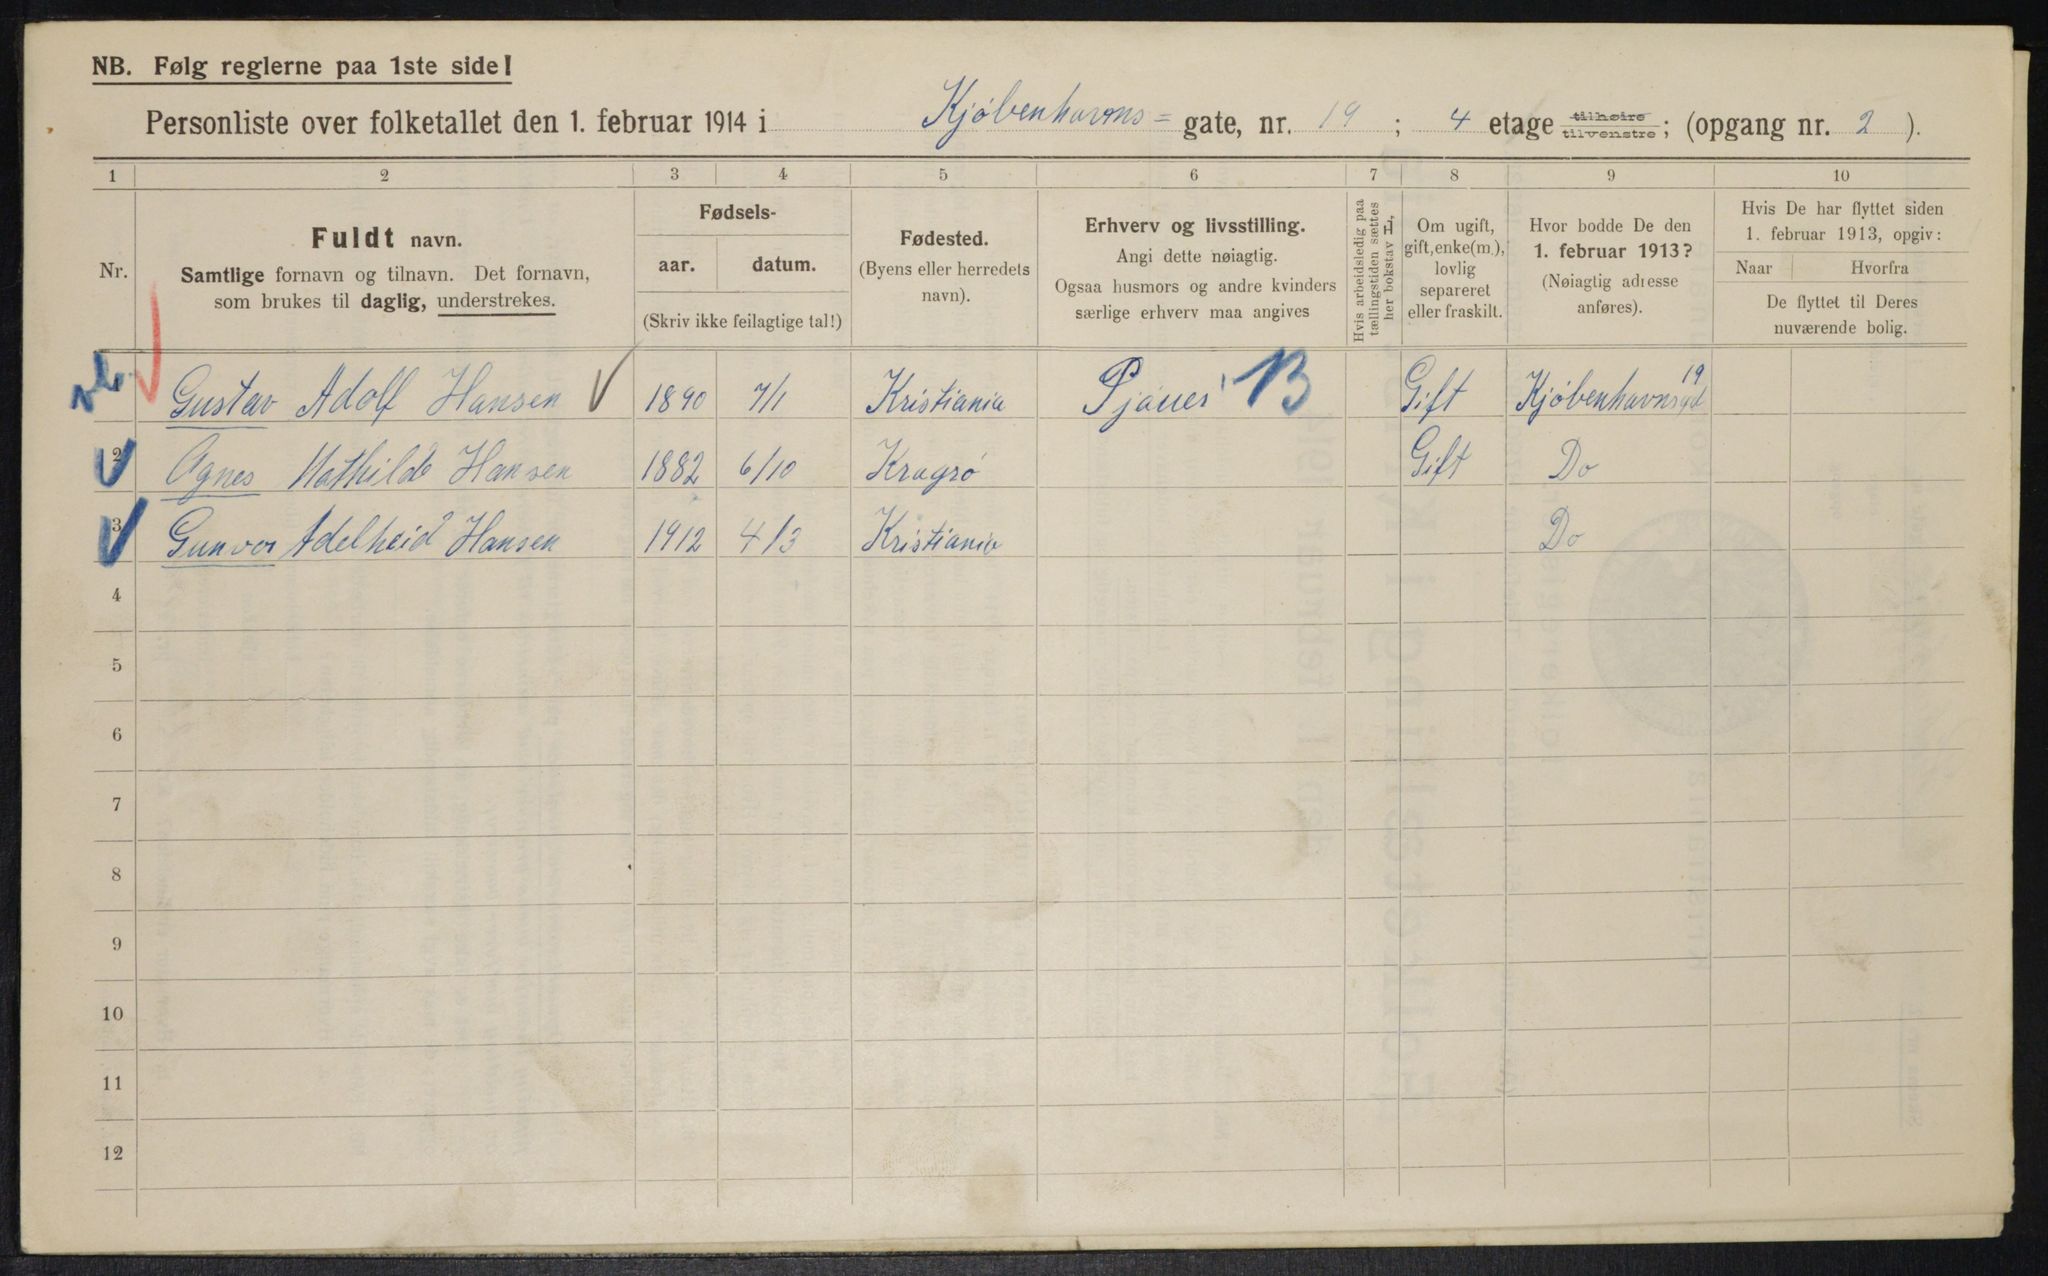 NB. Følg reglerne paa 1ste side!
Personliste over folketallet den 1. februar 1914 i Kjøbenhavns= gate, nr. 19 ; 4 etage tilhøire tilvenstre; (opgang nr. 2 ).
1 2 3 4 5 6 7 8 9 10
Nr.
Fuldt navn.
Samtlige fornavn og tilnavn. Det fornavn,
som brukes til daglig, understrekes.
Fødsels-
aar. datum.
(Skriv ikke feilagtige tal!)
Fødested.
(Byens eller herredets
navn).
Erhverv og livsstilling.
Angi dette nøiagtig.
Ogsaa husmors og andre kvinders
særlige erhverv maa angives
Hvis arbeidsledig paa
tællingstiden sættes
her bokstav L.
Om ugift,
gift, enke(m.),
lovlig
separeret
eller fraskilt.
Hvor bodde De den
1. februar 1913?
(Nøiagtig adresse
anføres).
Hvis De har flyttet siden
1. februar 1913, opgiv:
Naar Hvorfra
De flyttet til Deres
nuværende bolig.
1 Gustav Adolf Hansen 1890 7/1 Kristiania B Gift Kjøbenhavnsgd 19
2 Agnes Mathilde Hansen 1882 6/10 Kragrø Gift Do
3 Gunvor Adelheid Hansen 1912 4/3 Kristiania Do
4
5
6
7
8
9
10
11
12